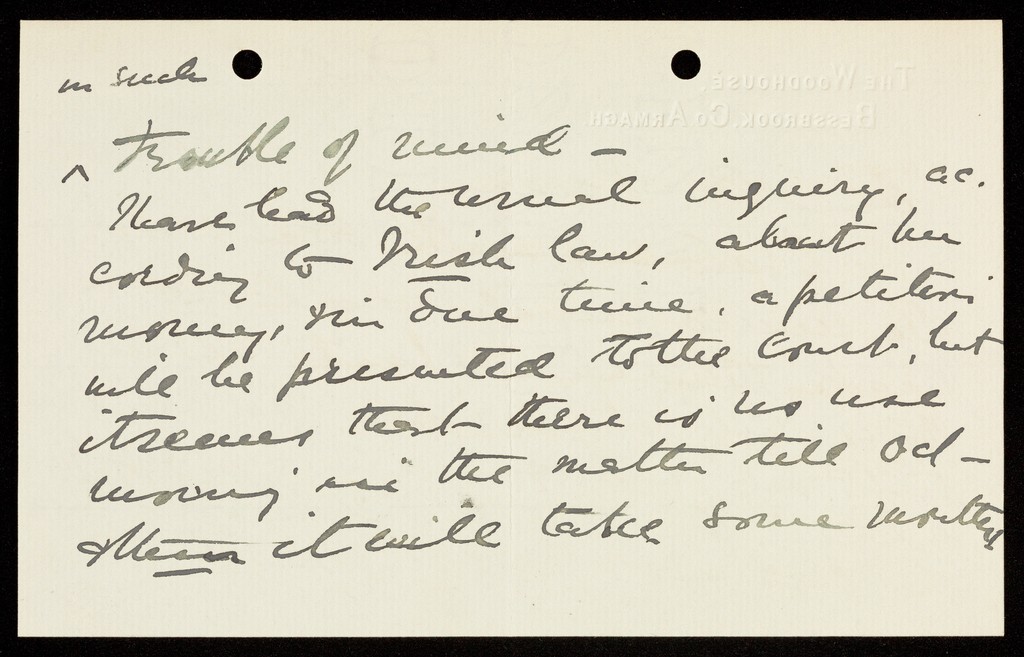 in such
^ trouble of mind —
I have had the usual inquiry, ac-
cording to Irish law, about her
money, & in due time, a petition
will be presented to the Court, but
it seems that there is no use
moving in the matter till Oct —
& then it will take some months
THE WOODHOUSE,
BESSBROOK. CO ARMAGH.